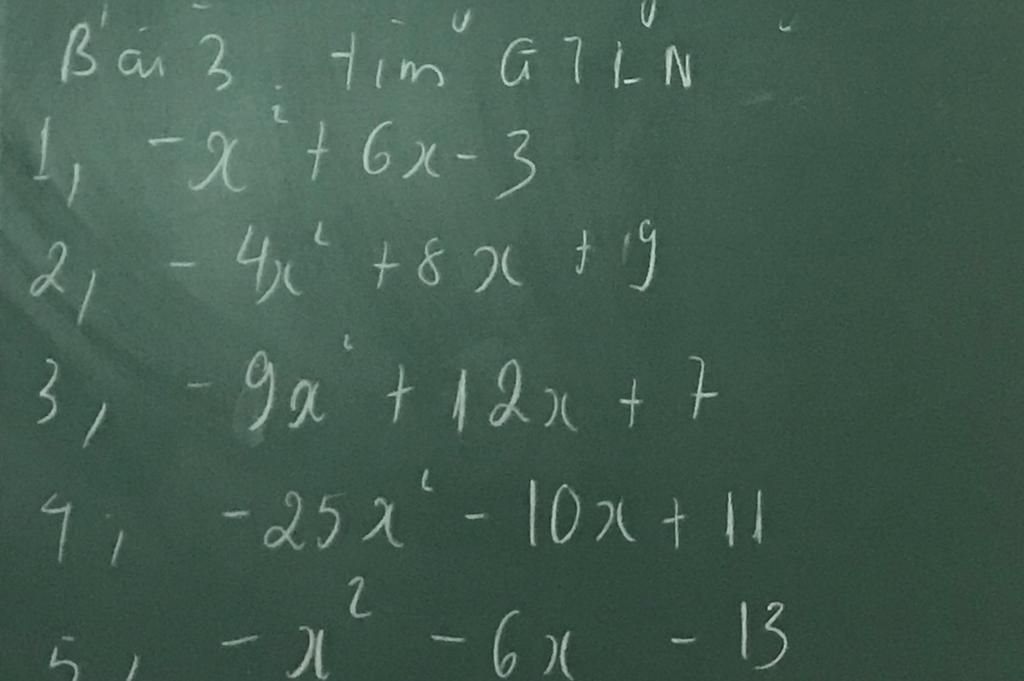 Bài 3 tìm GTLN
1, -x² + 6x - 3
2, - 4x² + 8x + 9
3, - 9x² + 12x + 7
4, -25x² - 10x + 11
5, - x² - 6x - 13